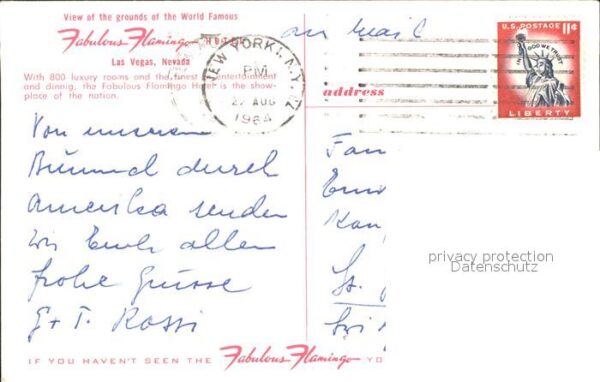 View of the grounds of the World Famous
Fabulous Flamingo HOTEL
Las Vegas, Nevada
With 800 luxury rooms and the finest in entertainment
and dinnig, the Fabulous Flamingo Hotel is the show-
place of the nation.
air mail
NEW YORK, N.Y.
PM
27 AUG
1964
U.S. POSTAGE 11¢
IN GOD WE TRUST
LIBERTY
address
Von unserem
Bummel durch
Amerika senden
wir Euch allen
frohe Grüsse
G+T. Rossi
Fam
St.
privacy protection
Datenschutz
IF YOU HAVEN'T SEEN THE Fabulous Flamingo YO